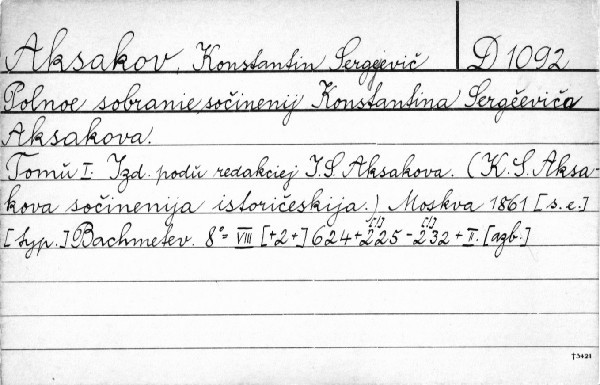 Aksakov, Konstantin Sergejevič D 1092
Polnoe sobranie sočinenij Konstantina Sergěeviča
Aksakova.
Tomŭ I. Izd. podŭ redakciej I. S. Aksakova. (K. S. Aksa-
kova sočinenija istoričeskija.) Moskva 1861 [s. e.]
[typ.] Bachmetev. 8° = VIII [+2+] 624 + 225 [!] - 232 [!] + II. [azb.]
†3424